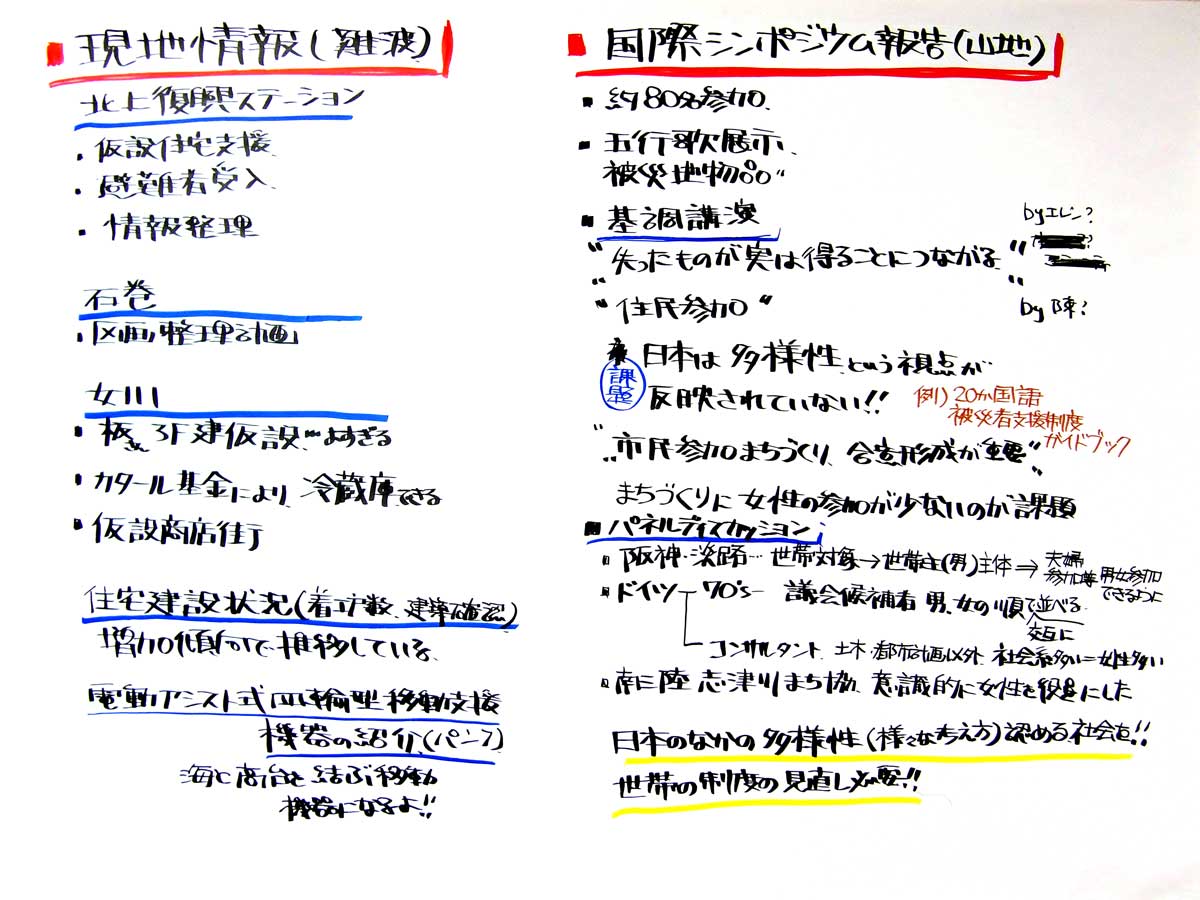 ■ 現地情報(難波)
北上復興ステーション
・仮設住宅支援
・避難者受入
・情報整理
石巻
・区画整理計画
女川
・坂さん 3F建仮設…よすぎる
・カタール基金により、冷蔵庫できる
・仮設商店街
住宅建設状況(着工数、建築確認)
増加傾向で推移している。
電動アシスト式四輪型移動支援
機器の紹介(パンフ)
海と高台を結ぶ移動
機器になるよ!!
■ 国際シンポジウム報告(山地)
・約80名参加
・五行歌展示
被災地物品〃
■ 基調講演
"失ったものが実は得ることにつながる"
byエレン?
"住民参加"
by陳?
日本は多様性という視点が
課題
反映されていない!!
例)20か国語
被災者支援制度
ガイドブック
"市民参加まちづくり、合意形成が重要"
まちづくりに女性の参加が少ないのが課題
■ パネルディスカッション
・阪神・淡路…世帯対象→世帯主(男)主体⇒夫婦
男女参加
できるように
・ドイツー70's― 議会候補者 男、女の順で並べる
交互に
コンサルタント 土木・都市計画以外 社会系多い=女性多い
・南三陸 志津川まち協、意識的に女性を役員にした
日本のなかの多様性(様々な考え方)認める社会を!!
世帯の制度の見直し必要!!